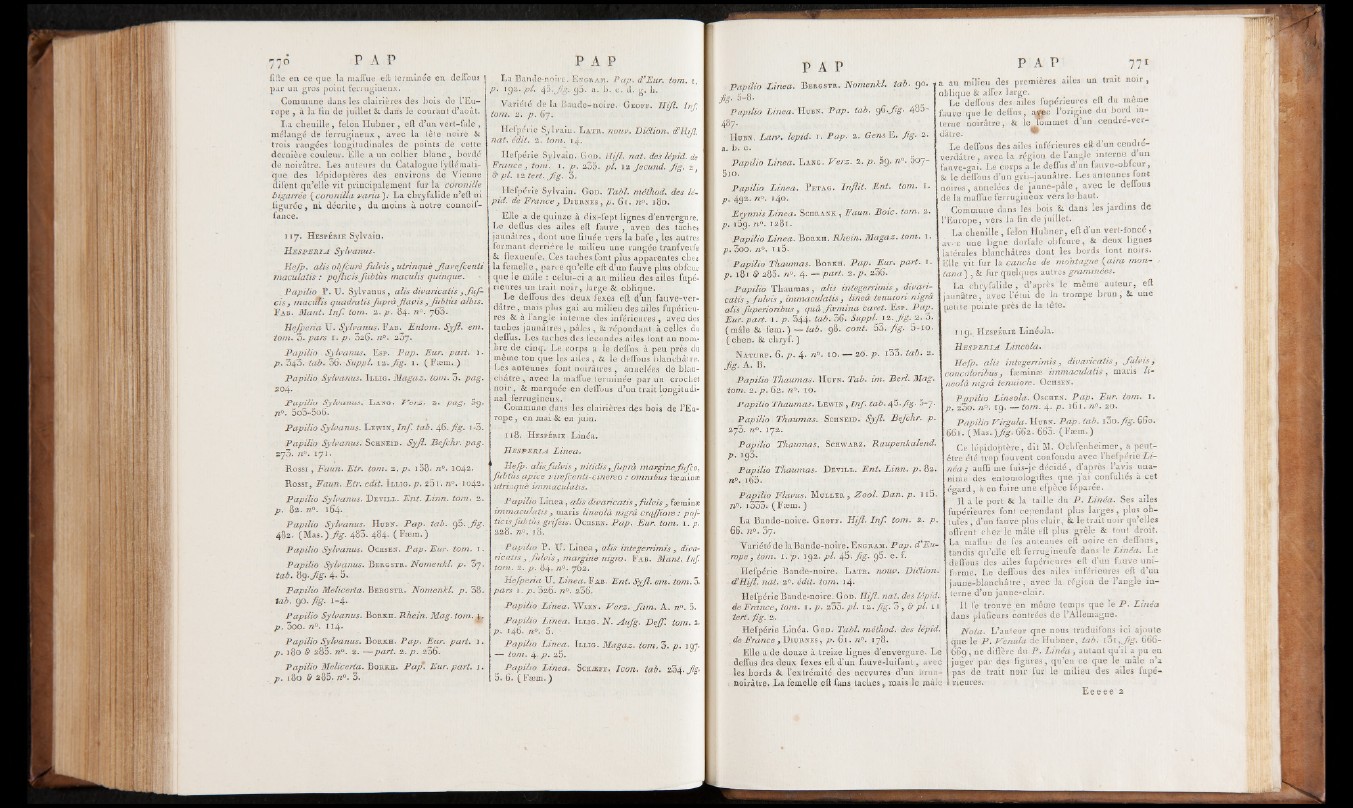 776 P A P
ſiſte en ce que la maſſue eſt terminée en deſſous
par un gros point ferrugineux.
Commune dans les clairières des bois de l'Eu-
rope, à la fin de juillet & dans le courant d'août.
La chenille, ſelon Hubner, eſt d'un vert-ſale,
mélangé de ferrugineux, avec la tête noire &
trois rangées longitudinales de points de cette
dernière couleur. Elle a un collier blanc, bordé
de noirâtre. Les auteurs du Catalogue ſyſtémati-
que des lépidoptères des environs de Vienne
diſent qu'elle vit principalement ſur la coronille
bigarrée (coronilla varia). La chryſalide n'eſt ni
figurée, ni décrite, du moins à notre connoiſ-
ſance.
117. HESPÉRIE Sylvain.
HESPERIA Sylvanus.
Heſp. alis obſcurè fulvis, utrinquè flaveſcenti
maculatis : poſticis ſubtùs maculis quinque.
Papilio P. U. Sylvanus, alis divaricatis, fuſ-
cis, maculis quadratis ſuprà flavis, ſubtùs albis.
FAB. Mant. Inſ. tom. 2. p. 84. n°. 765.
Heſperia U. Sylvanus. FAB. Entom. Syſt. em.
tom. 3. pars 1. p. 326. n°. 237.
Papilio Sylvanus. ESP. Pap. Eur. part. 1.
p. 343. tab. 36. Suppl. 12. fig. 1. (Fœm.)
Papilio Sylvanus. ILLIG. Magaz. tom. 3. pag.
204.
Papilio Sylvanus. LANG. Verz. 2. pag. 59.
n°. 503-506.
Papilio Sylvanus. LEWIN, Inſ. tab. 46. fig. 1-3.
Papilio Sylvanus. SCHNEID. Syſt. Beſchr. pag.
273. n°. 171.
ROSSI, Faun. Etr. tom. 2. p. 158. n°. 1042.
ROSSI, Faun. Etr. edit. ILLIG. p. 251. n°. 1042.
Papilio Sylvanus. DEVILL. Ent. Linn. tom. 2.
p. 82. n°. 164.
Papilio Sylvanus. HUBN. Pap. tab. 95. fig.
482. (Mas.) fig. 483. 484. (Fœm.)
Papilio Sylvanus. OCHSEN. Pap. Eur. tom. 1.
Papilio Sylvanus. BERGSTR. Nomenkl. p. 37.
tab. 89. fig. 4. 5.
Papilio Melicerta. BERGSTR. Nomenkl. p. 38.
tab. 90. fig. 1-4.
Papilio Sylvanus. BORKH. Rhein. Mag. tom. 1.
p. 300. n°. 114.
Papilio Sylvanus. BORKH. Pap. Eur. part. 1.
p. 180 & 285. n°. 2. — part. 2. p. 236.
Papilio Melicerta. BORKH. Pap. Eur. part. 1.
p. 180 & 285. n°. 3.
P A P
La Bande-noire. ENGRAM. Pap. d'Eur. tom. 1.
p. 192. pl. 45. fig. 95. a. b. c. d. g. h.
Variété de la Bande-noire. GEOFF. Hiſt. Inſ.
tom. 2. p. 67.
Heſpérie Sylvain. LATR. nouv. Diction. d'Hiſt.
nat. édit. 2. tom. 14.
Heſpérie Sylvain. GOD. Hiſt. nat. des lépid. de
France, tom. 1. p. 235. pl. 12 ſecund. fig. 2,
& pl. 12 tert. fig. 3.
Heſpérie Sylvain. GOD. Tabl. méthod. des lé-
pid. de France, DIURNES, p. 61. n°. 180.
Elle a de quinze à dix-ſept lignes d'envergure.
Le deſſus des ailes eſt fauve, avec des taches
jaunâtres, dont une ſituée vers la baſe, les autres
formant derrière le milieu une rangée tranſverſe
& flexueuſe. Ces taches ſont plus apparentes chez
la femelle, parce qu'elle eſt d'un fauve plus obſcur
que le mâle : celui-ci a au milieu des ailes ſupé-
rieures un trait noir, large & oblique.
Le deſſous des deux ſexes eſt d'un fauve-ver-
dâtre, mais plus gai au milieu des ailes ſupérieu-
res & à l'angle interne des inférieures, avec des
taches jaunâtres, pâles, & répondant à celles du
deſſus. Les taches des ſecondes ailes ſont au nom-
bre de cinq. Le corps a le deſſus à peu près du
même ton que les ailes, & le deſſous blanchâtre.
Les antennes ſont noirâtres, annelées de blan-
châtre, avec la maſſue terminée par un crochet
noir, & marquée en deſſous d'un trait longitudi-
nal ferrugineux.
Commune dans les clairières des bois de l'Eu-
rope, en mai & en juin.
118. HESPÉRIE Linéa.
HESPERIA Linea.
Heſp. alis fulvis, nitidis, ſuprà margine fuſco,
ſubtùs apice vireſcenti-cinereo : omnibus fœminæ
utrinquè immaculatis.
Papilio Linea, alis divaricatis, fulvis, fœminæ
immaculatis, maris lineolâ nigrâ craſſiore : poſ-
ticis ſubtùs griſeis. OCHSEN. Pap. Eur. tom. 1. p.
228. n°. 18.
Papilio P. U. Linea, alis integerrimis, diva-
ricatis, fulvis, margine nigro. FAB. Mant. Inſ.
tom. 2. p. 84. n°. 762.
Heſperia U. Linea. FAB. Ent. Syſt. em. tom. 3.
pars 1. p. 326. n°. 236.
Papilio Linea. WIEN. Verz. fam. A. n°. 5.
Papilio Linea. ILLIG. N. Auſg. Deſſ. tom. 2.
p. 146. n°. 5.
Papilio Linea. ILLIG. Magaz. tom. 3. p. 197.
— tom. 4. p. 25.
Papilio Linea. SCHÆFF. Icon. tab. 234. fig.
5. 6. (Fœm.)
P A P
Papilio Linea. BERGSTR. Nomenkl. tab. 90.
fig. 5-8.
Papilio Linea. HUBN. Pap. tab. 96. fig. 485-
487.
HUBN. Larv. lepid. 1. Pap. 2. Gens E. fig. 2.
a. b. c.
Papilio Linea. LANG. Verz. 2. p. 59. n°. 507-
510.
Papilio Linea. PETAG. Inſtit. Ent. tom. 1.
p. 492. n°. 140.
Erynnis Linea. SCHRANK, Faun. Boic. tom. 2.
p. 159. n°. 1281.
Papilio Linea. BORKH. Rhein. Magaz. tom. 1.
p. 300. n°. 115.
Papilio Thaumas. BORKH. Pap. Eur. part. 1.
p. 181 & 285. n°. 4. — part. 2. p. 236.
Papilio Thaumas, alis integerrimis, divari-
catis, fulvis, immaculatis, lineâ tenuiori nigrâ
alis ſuperioribus, quâ fœmina caret. ESP. Pap.
Eur. part. 1. p. 344. tab. 36. Suppl. 12. fig. 2. 3.
(mâle & fem.) — tab. 98. cont. 53. fig. 5-10.
(chen. & chryſ.)
NATURF. 6. p. 4. n°. 10. — 20. p. 133. tab. 2.
fig. A. B.
Papilio Thaumas. HUFN. Tab. im. Berl. Mag.
tom. 2. p. 62. n°. 10.
Papilio Thaumas. LEWIN, Inſ. tab. 45. fig. 5-7.
Papilio Thaumas. SCHNEID. Syſt. Beſchr. p.
275. n°. 172.
Papilio Thaumas. SCHWARZ. Raupenkalend.
p. 195.
Papilio Thaumas. DEVILL. Ent. Linn. p. 82.
n°. 165.
Papilio Flavus. MULLER, Zool. Dan. p. 115.
n°. 1333. (Fœm.)
La Bande-noire. GEOFF. Hiſt. Inſ. tom. 2. p.
66. n°. 37.
Variété de la Bande-noire. ENGRAM. Pap. d'Eu-
rope, tom. 1. p. 192. pl. 45. fig. 95. e. f.
Heſpérie Bande-noire. LATR. nouv. Diction.
d'Hiſt. nat. 2°. édit. tom. 14.
Heſpérie Bande-noire. GOD. Hiſt. nat. des lépid.
de France, tom. 1. p. 233. pl. 12. fig. 3, & pl. 12
tert. fig. 2.
Heſpérie Linéa. GOD. Tabl. méthod. des lépid.
de France, DIURNES, p. 61. n°. 178.
Elle a de douze à treize lignes d'envergure. Le
deſſus des deux ſexes eſt d'un fauve-luiſant, avec
les bords & l'extrémité des nervures d'un brun-
noirâtre. La femelle eſt ſans taches, mais le mâle
P A P 771
a au milieu des premières ailes un trait noir,
oblique & aſſez large.
Le deſſous des ailes ſupérieures eſt du même
fauve que le deſſus, avec l'origine du bord in-
terne noirâtre, & le ſommet d'un cendré-ver-
dâtre.
Le deſſous des ailes inférieures eſt d'un cendré-
verdâtre, avec la région de l'angle interne d'un
fauve-gai. Le corps a le deſſus d'un fauve-obſcur,
& le deſſous d'un gris-jaunâtre. Les antennes ſont
noires, annelées de jaune-pâle, avec le deſſous
de la maſſue ferrugineux vers le haut.
Commune dans les bois & dans les jardins de
l'Europe, vers la fin de juillet.
La chenille, ſelon Hubner, eſt d'un vert-foncé,
avec une ligne dorſale obſcure, & deux lignes
latérales blanchâtres dont les bords ſont noirs.
Elle vit ſur la canche de montagne (aira mon-
tana), & ſur quelques autres graminées.
La chryſalide, d'après le même auteur, eſt
jaunâtre, avec l'étui de la trompe brun, & une
petite pointe près de la tête.
119. HESPÉRIE Linéola.
HESPERIA Lineola.
Heſp. alis integerrimis, divaricatis, fulvis,
concoloribus, fœminæ immaculatis, maris li-
neolâ nigrâ tenuiore. OCHSEN.
Papilio Lineola. OSCHEN. Pap. Eur. tom. 1.
p. 230. n°. 19. — tom. 4. p. 161. n°. 20.
Papilio Virgula. HUBN. Pap. tab. 130. fig. 660.
661. (Mas.) fig. 662. 663. (Fœm.)
Ce lépidoptère, dit M. Ochſenheimer, a peut-
être été trop ſouvent confondu avec l'heſpérie Li-
néa; auſſi me ſuis-je décidé, d'après l'avis una-
nime des entomologiſtes que j'ai conſultés à cet
égard, à en faire une eſpèce ſéparée.
Il a le port & la taille du P. Linéa. Ses ailes
ſupérieures ſont cependant plus larges, plus ob-
tuſes, d'un fauve plus clair, & le trait noir qu'elles
offrent chez le mâle eſt plus grêle & tout droit.
La maſſue de ſes antennes eſt noire en deſſous,
tandis qu'elle eſt ferrugineuſe dans le Linéa. Le
deſſous des ailes ſupérieures eſt d'un fauve uni-
forme. Le deſſous des ailes inférieures eſt d'un
jaune-blanchâtre, avec la région de l'angle in-
terne d'un jaune-clair.
Il ſe trouve en même temps que le P. Linéa
dans pluſieurs contrées de l'Allemagne.
Nota. L'auteur que nous traduiſons ici ajoute
que le P. Venula de Hubner, tab. 131, fig. 666-
669, ne diffère du P. Linéa, autant qu'il a pu en
juger par des figures, qu'en ce que le mâle n'a
pas de trait noir ſur le milieu des ailes ſupé-
rieures.
E e e e e 2